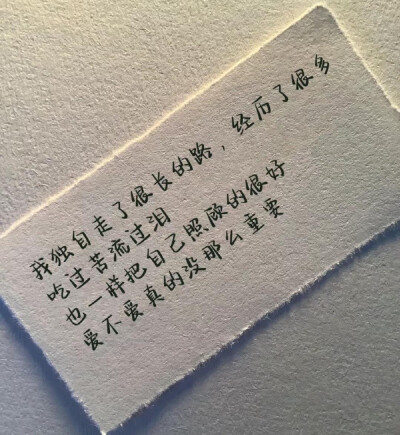 我独自走了很长的路，经历了很多
吃过苦流过泪
也一样把自己照顾的很好
爱不爱真的没那么重要